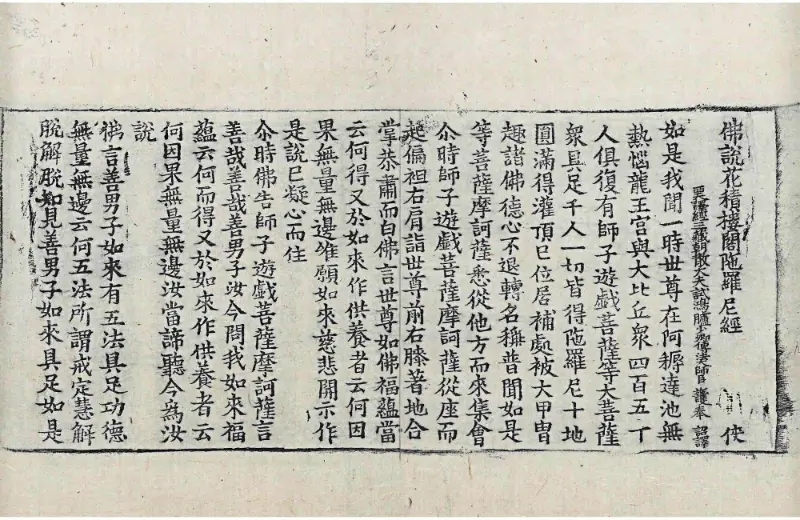 佛說花積樓閣陁羅尼經 俠
西天譯經三藏朝散大夫試鴻臚少卿傳法大師臣施護奉 詔譯
如是我聞一時世尊在阿耨達池無
熱惱龍王宮與大比丘衆四百五十
人俱復有師子遊戲菩薩等大菩薩
衆具足千人一切皆得陁羅尼十地
圓滿得灌頂已位居補處被大甲冑
趣諸佛德心不退轉名稱普聞如是
等菩薩摩訶薩悉從他方而來集會
尒時師子遊戲菩薩摩訶薩從座而
起偏袒右肩詣世尊前右膝著地合
掌恭肅而白佛言世尊如佛福蘊當
云何得又於如來作供養者云何因
果無量無邊惟願如來慈悲開示作
是說已凝心而住
尒時佛告師子遊戲菩薩摩訶薩言
善哉善哉善男子汝今問我如來福
蘊云何而得又於如來作供養者云
何因果無量無邊汝當諦聽今為汝
說
佛言善男子如來有五法具足功德
無量無邊云何五法所謂戒定慧解
脫解脫知見善男子如來具足如是